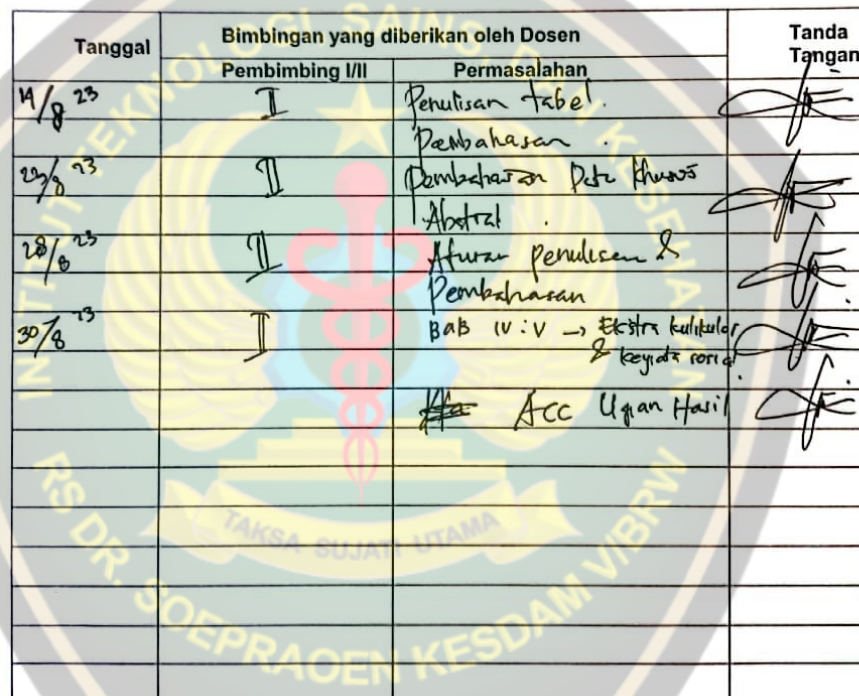 Tanggal
Bimbingan yang diberikan oleh Dosen
Tanda Tangan
Pembimbing I/II
Permasalahan
14/8 23 II Penulisan tabel.
Pembahasan.
23/8 23 II Pembahasan Data Khusus
Abstrak.
28/8 23 II Aturan penulisan &
Pembahasan
30/8 23 II BAB IV : V → Ekstra kulikuler
&
Acc Ujian Hasil
INSTITUT TEKNOLOGI SAINS, DAN KESEHATAN
TAKSA SUJATI UTAMA
RS DR. SOEPRAOEN KESDAM V/BRW